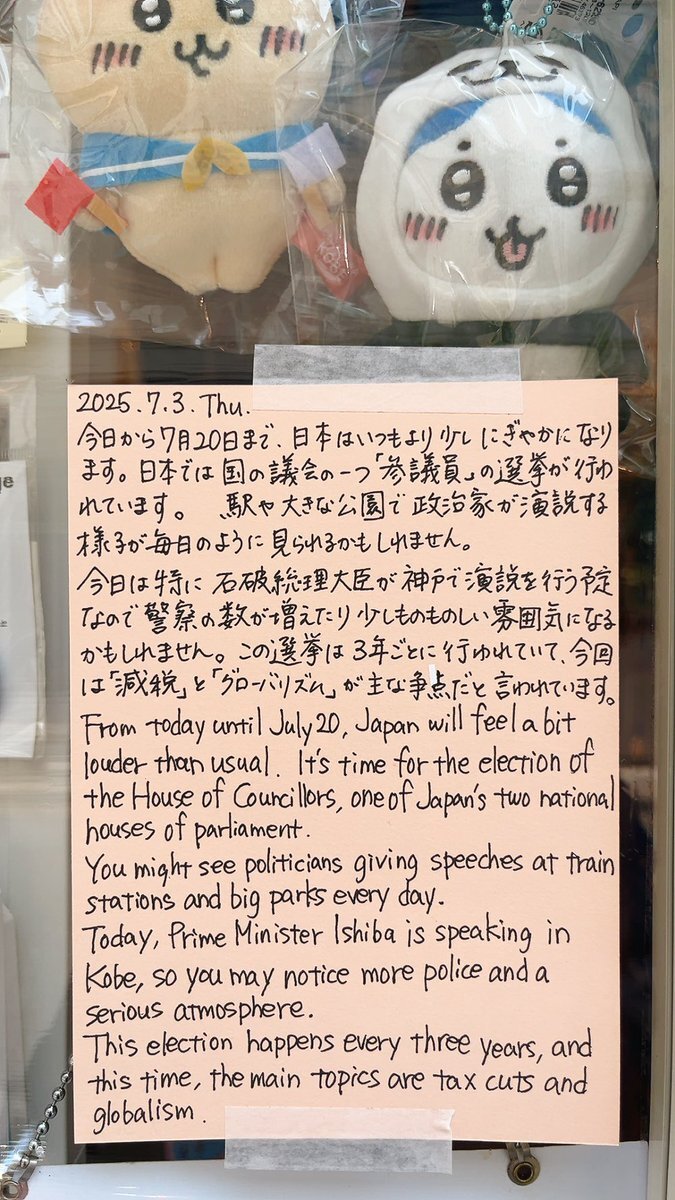 2025.7.3. Thu.
今日から7月20日まで、日本はいつもより少しにぎやかになり
ます。日本では国の議会の一つ「参議員」の選挙が行わ
れています。 駅や大きな公園で政治家が演説する
様子が毎日のように見られるかもしれません。
今日は特に石破総理大臣が神戸で演説を行う予定
なので警察の数が増えたり少しものものしい雰囲気になる
かもしれません。この選挙は3年ごとに行われていて、今回
は「減税」と「グローバリズム」が主な争点だと言われています。
From today until July 20, Japan will feel a bit
louder than usual. It's time for the election of
the House of Councillors, one of Japan's two national
houses of parliament.
You might see politicians giving speeches at train
stations and big parks every day.
Today, Prime Minister Ishiba is speaking in
Kobe, so you may notice more police and a
serious atmosphere.
This election happens every three years, and
this time, the main topics are tax cuts and
globalism.